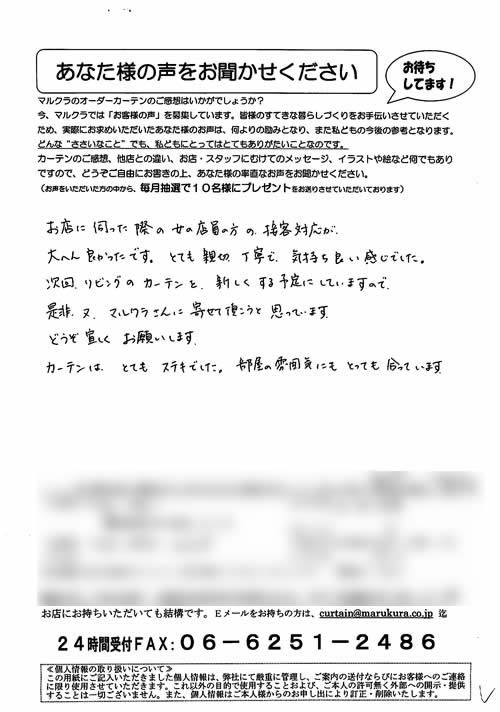 あなた様の声をお聞かせください
お待ち
してます！
マルクラのオーダーカーテンのご感想はいかがでしょうか？
今、マルクラでは「お客様の声」を募集しています。皆様のすてきな暮らしづくりをお手伝いさせていただく
ため、実際にお求めいただいたあなた様のお声は、何よりの励みとなり、また私どもの今後の参考となります。
どんな“ささいなこと”でも、私どもにとってはとてもありがたいことなのです。
カーテンのご感想、他店との違い、お店・スタッフにむけてのメッセージ、イラストや絵など何でもあり
ですので、どうぞご自由にお書きの上、あなた様の率直なお声をお聞かせください。
（お声をいただいた方の中から、毎月抽選で１０名様にプレゼントをお送りさせていただいております）
お店に伺った際の女の店員の方の、接客対応が、
大へん良かったです。とても親切、丁寧で、気持ち良い感じでした。
次回、リビングのカーテンを、新しくする予定にしていますので、
是非、又、マルクラさんに寄せて頂こうと思っています。
どうぞ宜しくお願いします。
カーテンは、とてもステキでした。部屋の雰囲気にもとっても合っています。
お店にお持ちいただいても結構です。Ｅメールをお持ちの方は、curtain@marukura.co.jp 迄
２４時間受付FAX：０６－６２５１－２４８６
≪個人情報の取り扱いについて≫
この用紙にご記入いただきました個人情報は、弊社にて厳重に管理し、ご案内の送付ならびにお客様へのご連絡
に限り使用させていただきます。これ以外の目的で使用することおよび、ご本人の許可無く外部への開示・提供
することは一切ございません。また、個人情報はご本人様からのお申し出により訂正・削除いたします。